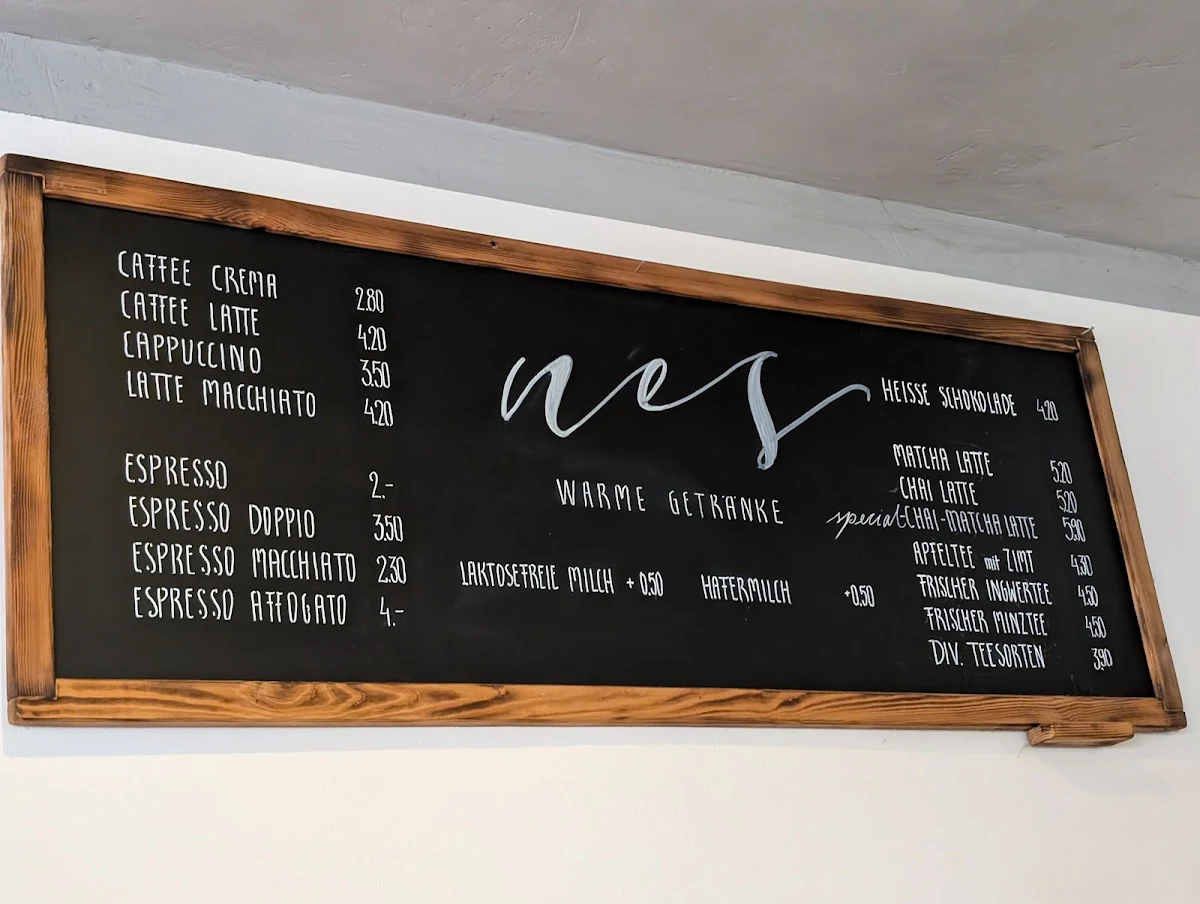 CAFFEE CREMA 2.80
CAFFEE LATTE 4.20
CAPPUCCINO 3.50
LATTE MACCHIATO 4.20
ESPRESSO 2.-
ESPRESSO DOPPIO 3.50
ESPRESSO MACCHIATO 2.30
ESPRESSO AFFOGATO 4.-
nes
WARME GETRÄNKE
LAKTOSEFREIE MILCH + 0.50 HAFERMILCH +0.50
HEISSE SCHOKOLADE 4.20
MATCHA LATTE 5.20
CHAI LATTE 5.20
special CHAI-MATCHA LATTE 5.90
APFELTEE mit ZIMT 4.30
FRISCHER INGWERTEE 4.50
FRISCHER MINZTEE 4.50
DIV. TEESORTEN 3.90